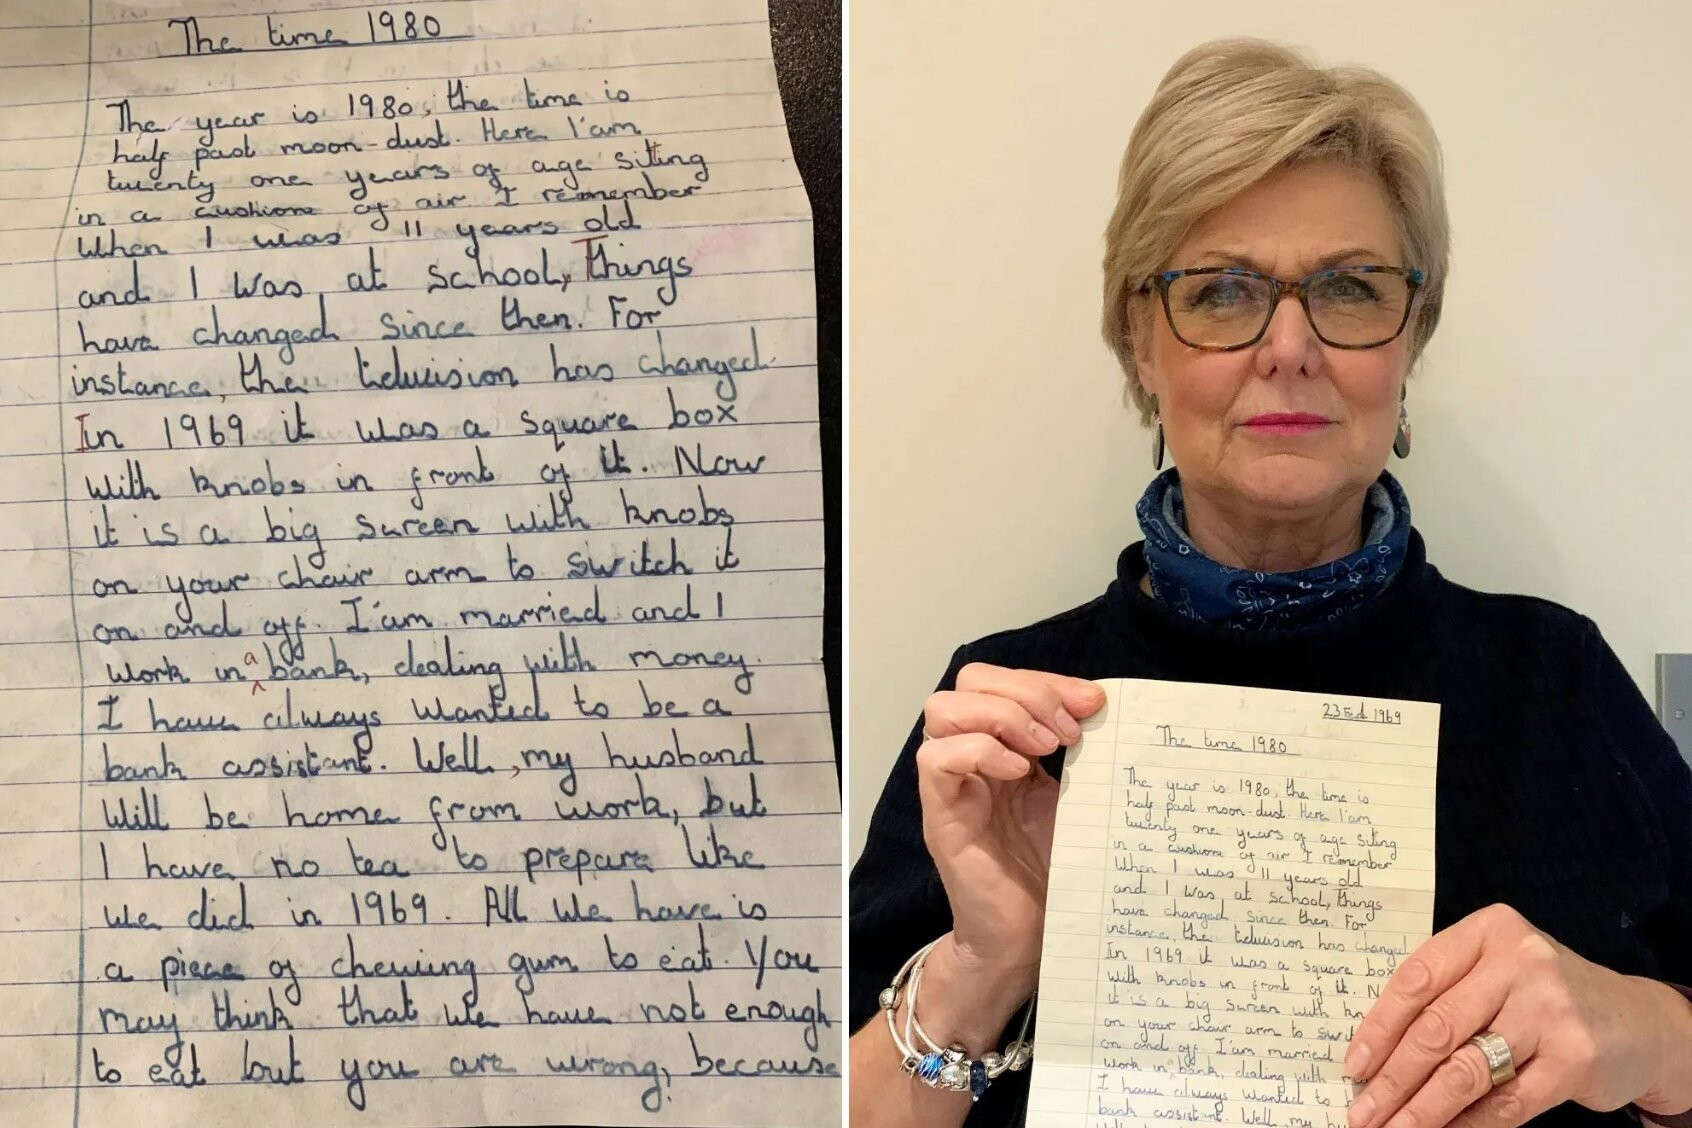 The time 1980
The year is 1980, the time is
half past moon-dust. Here I'am
twenty one years of age siting
in a cushione of air I remember
When I was 11 years old
and I was at school, Things
have changed since then. For
instance, the television has changed.
In 1969 it was a square box
with knobs in front of it. Now
it is a big screen with knobs
on your chair arm to switch it
on and off. I'am married and I
work in a bank, dealing with money.
I have always wanted to be a
bank assistant. Well, my husband
will be home from work, but
I have no tea to prepare like
we did in 1969. All we have is
a piece of chewing gum to eat. You
may think that we have not enough
to eat but you are wrong, because
23 Fed 1969
The time 1980
The year is 1980, the time is
half past moon-dust. Here I'am
twenty one years of age siting
in a cushione of air I remember
When I was 11 years old
and I was at school, Things
have changed since then. For
instance, the television has changed
In 1969 it was a square box
with knobs in front of it. N
it is a big screen with kn
on your chair arm to swit
on and off. I'am married
work in a bank, dealing with
I have always wanted to
bank assistant. Well, my hu